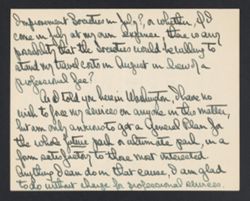 Improvement Societies in July?, or whether, if I
come in July at my own expense, there is any
possibility that the Societies would be willing to
stand my travel costs in August in lieu of a
professional fee?
As I told you here in Washington, I have no
wish to force my services on anyone in this matter,
but am only anxious to get a General Plan for
the whole future park or ultimate park, in a
form satisfactory to those most interested.
Anything I can do in that cause, I am glad
to do without charge for professional services.